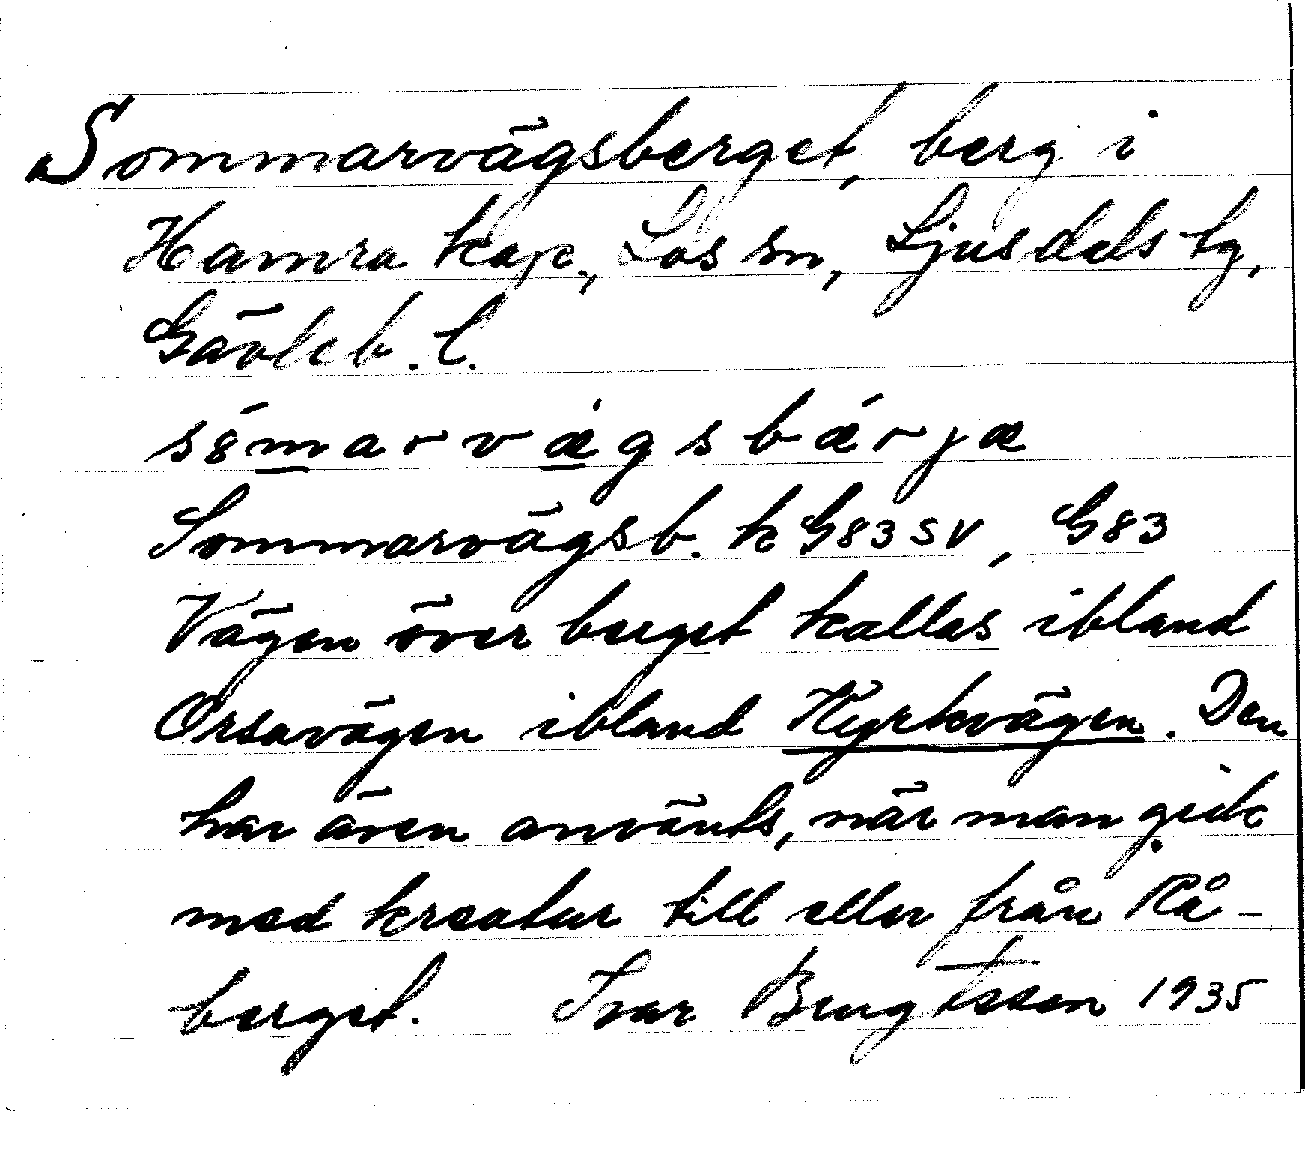 Sommarvägsberget, berg i
Hamra kap., Los sn, Ljusdals tg,
Gävleb. l.
sömarvægsbærjæ
Sommarvägsb. k G83 SV, G83
Vägen över berget kallas ibland
Orsavägen ibland Kyrkvägen. Den
har även använts, när man gick
med kreatur till eller från Rå-
berget. Ivar Bengtsson 1935